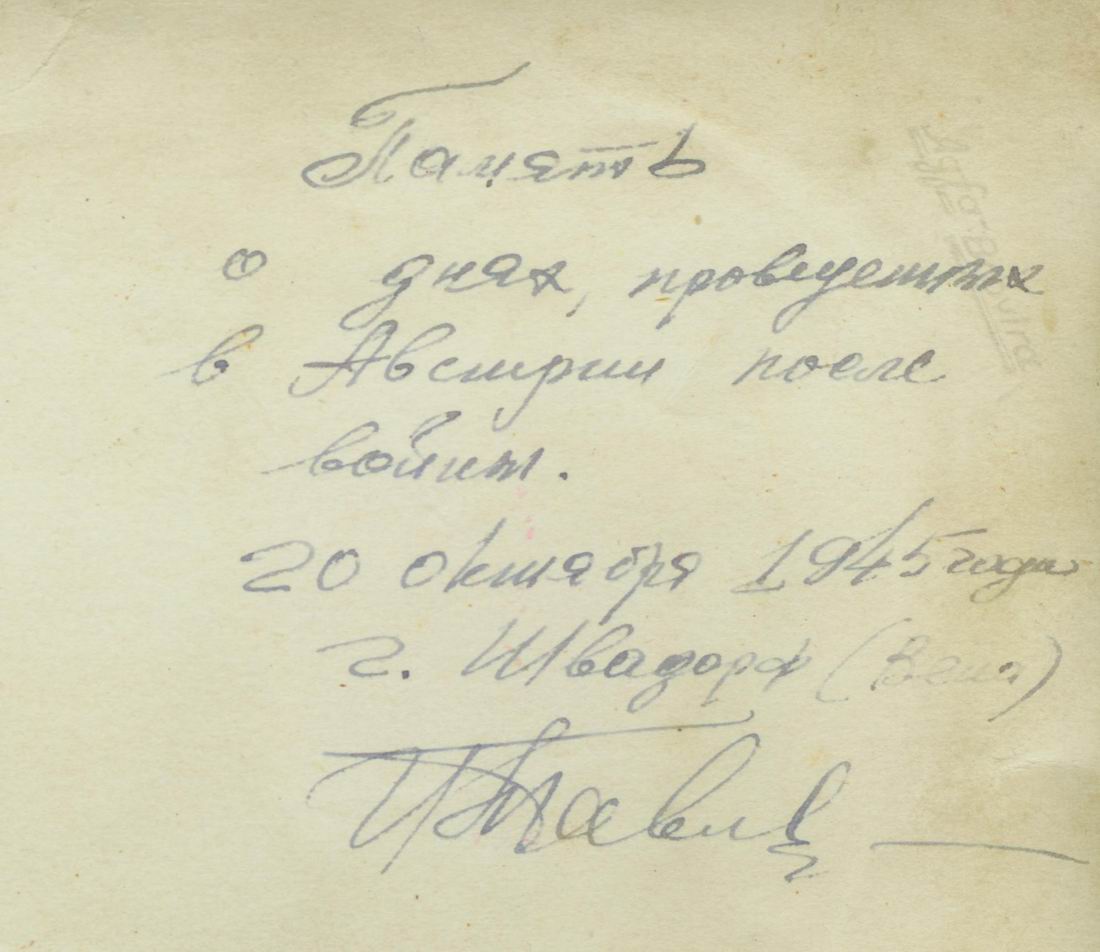 Память
о днях, проведенных
в Австрии после
войны.
20 октября 1945 года
г. Швадорф (Вена)